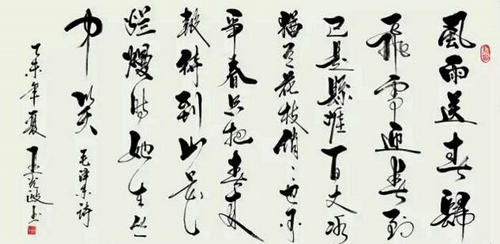 風雨送春歸
飛雪迎春到
已是懸崖百丈冰
猶有花枝俏〻也不
爭春只把春來
報待到山花
爛熳時她在丛
中笑 毛澤東詩
乙未年夏 王